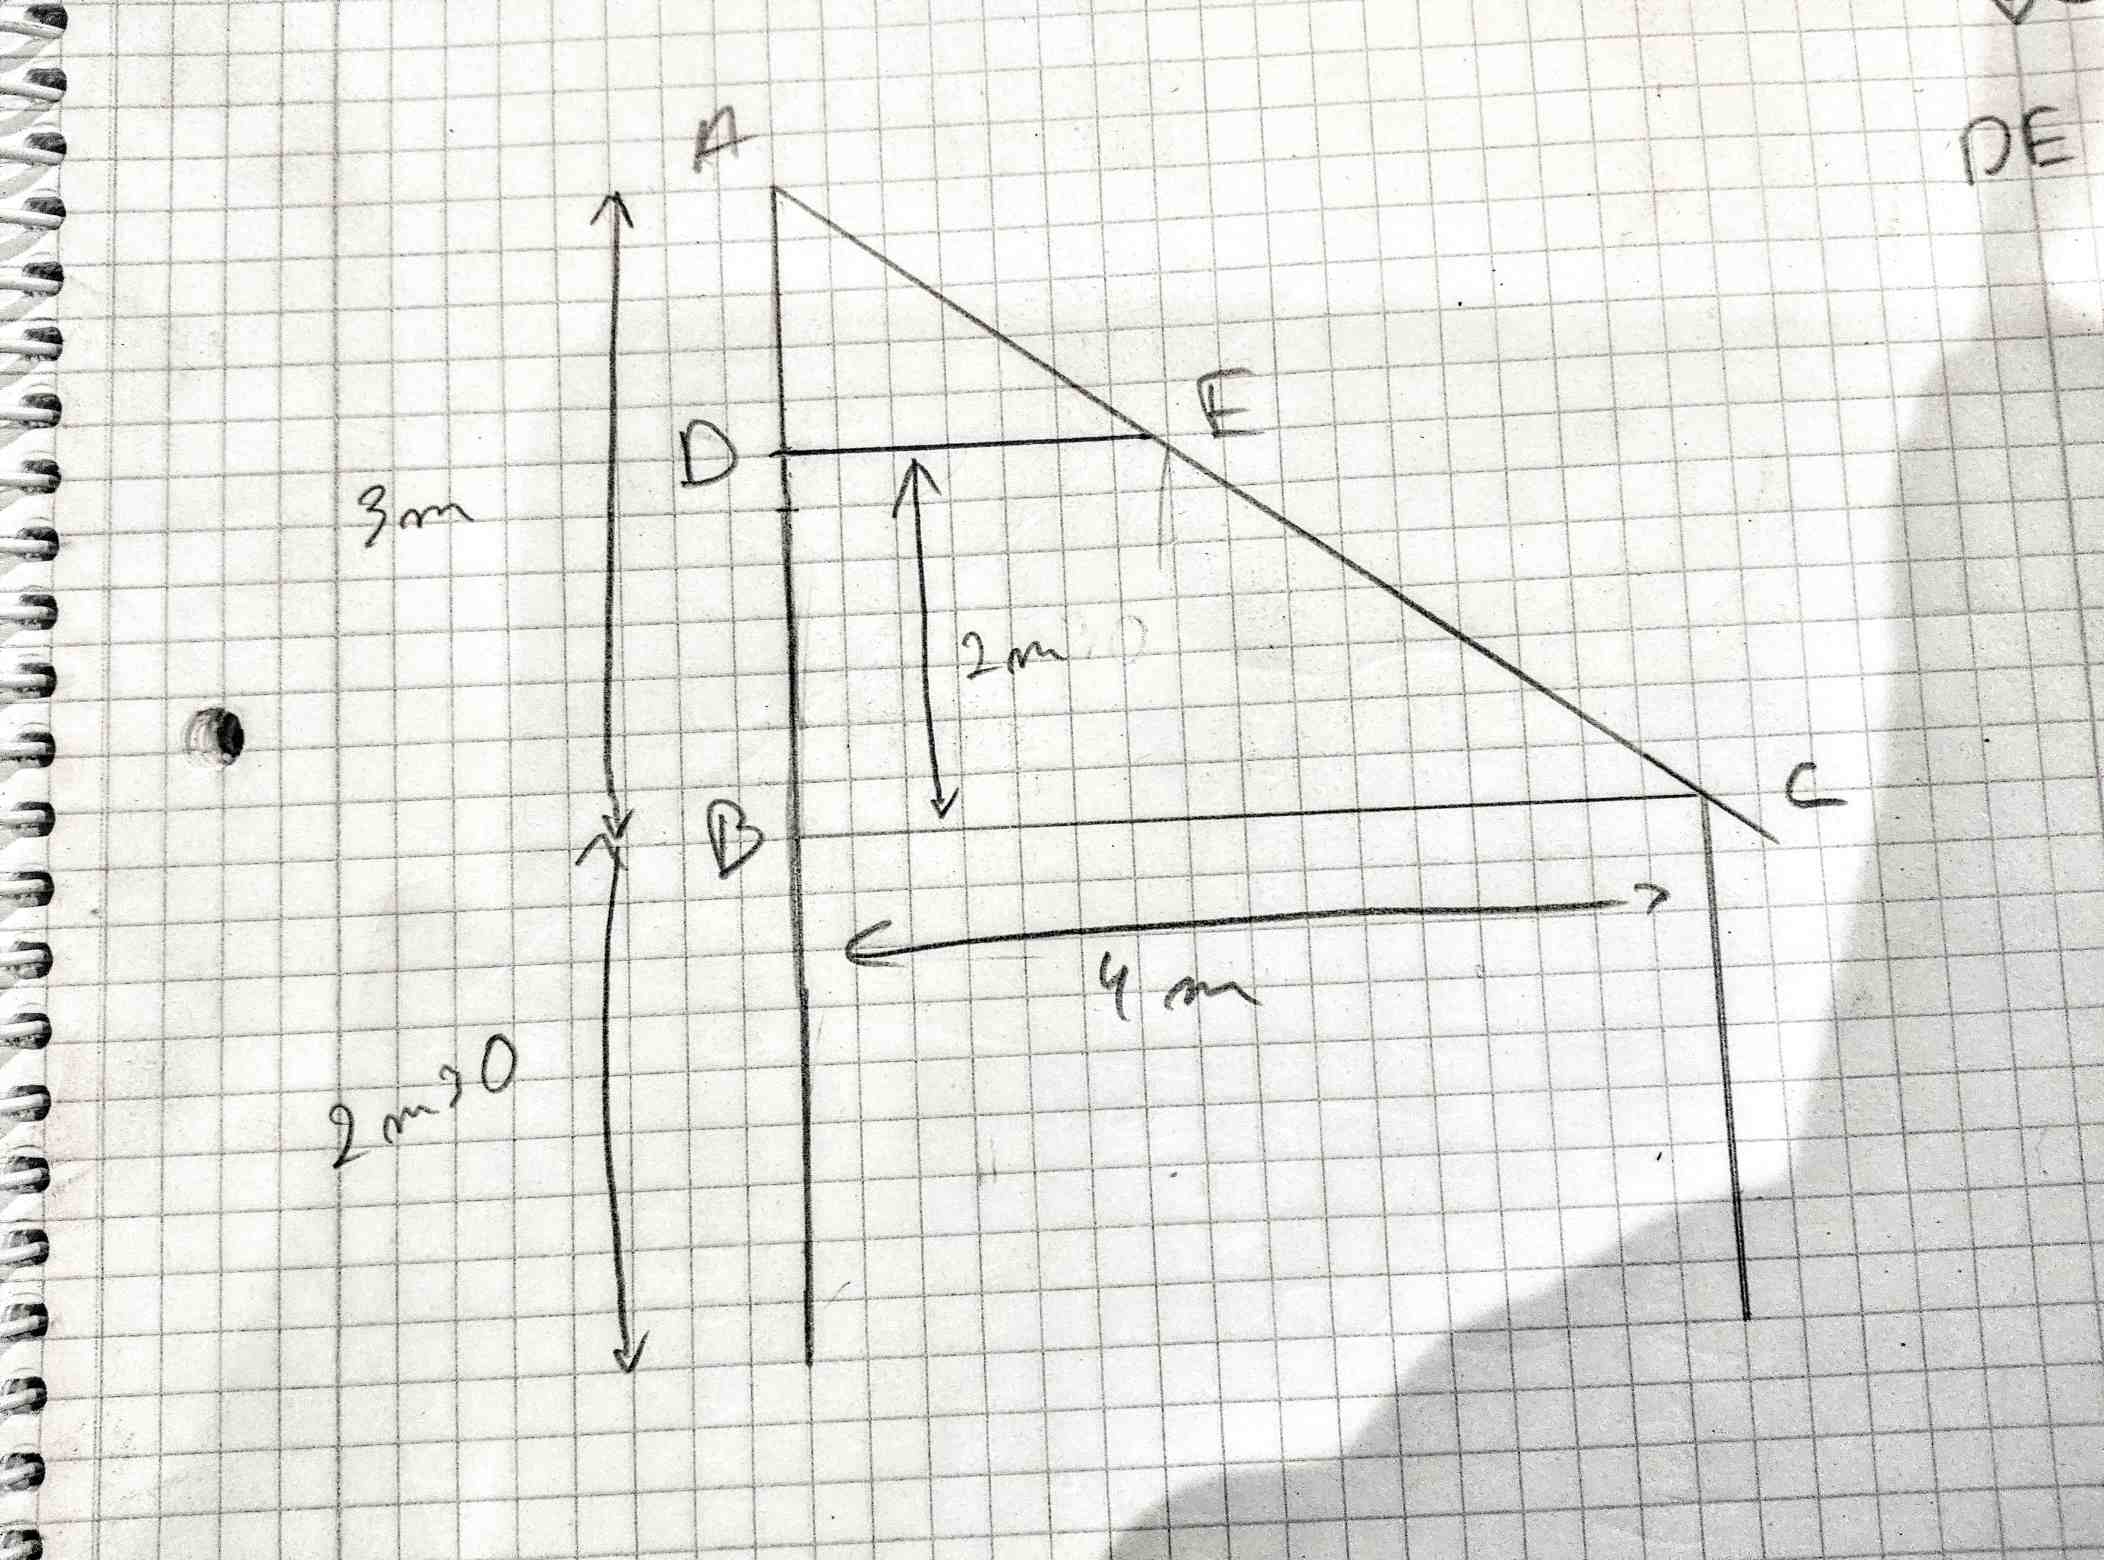 A
DE
E
D
3m
2m
C
B
4 m
2m30